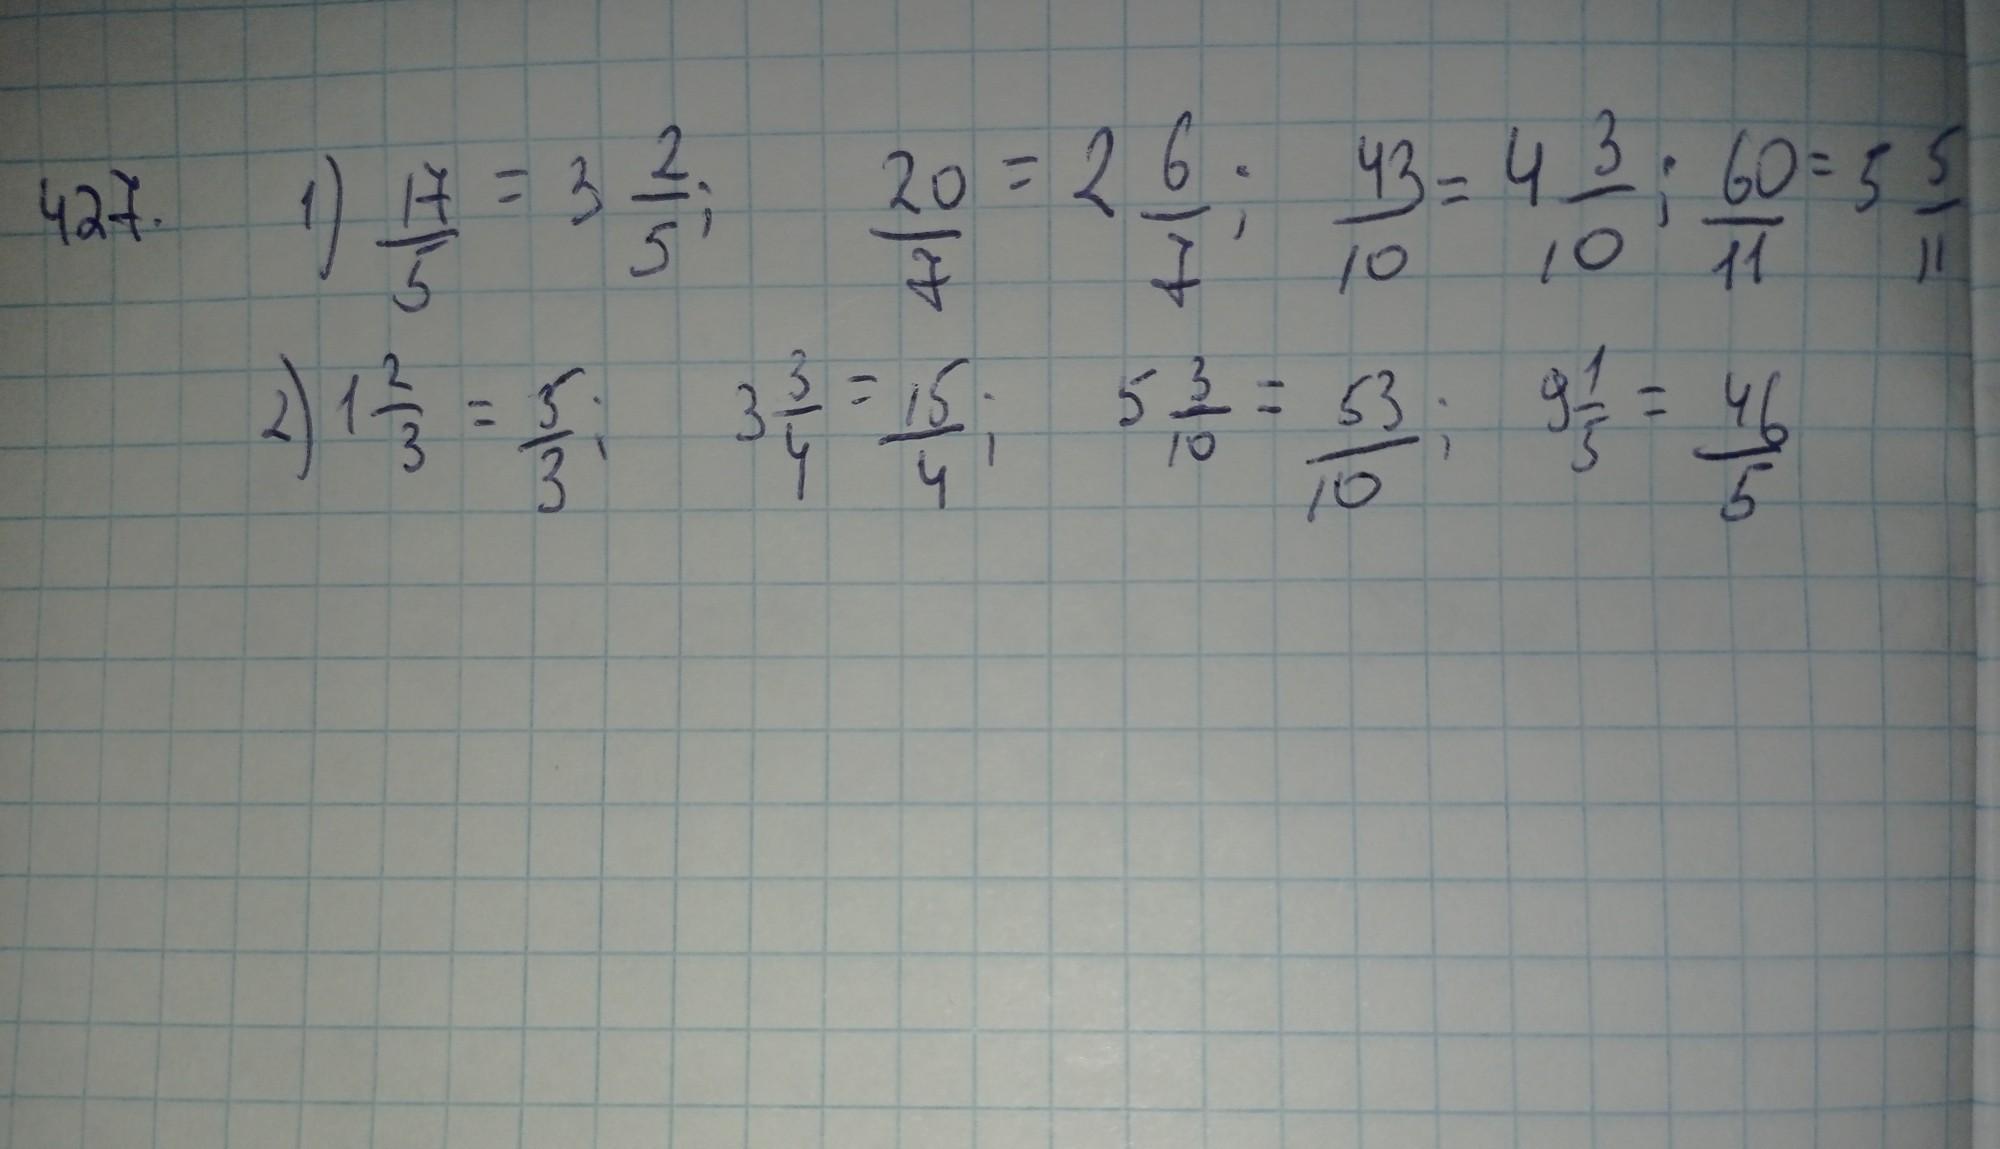 427. 1) 17/5 = 3 2/5; 20/7 = 2 6/7; 43/10 = 4 3/10; 60/11 = 5 5/11
2) 1 2/3 = 5/3; 3 3/4 = 15/4; 5 3/10 = 53/10; 9 1/5 = 46/5